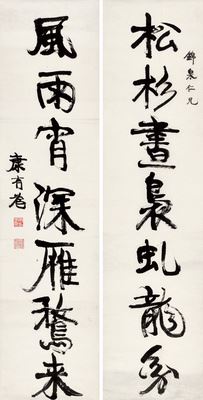 錦泉仁兄
松杉晝裊虬龍
風雨宵深雁鶩来
康有為